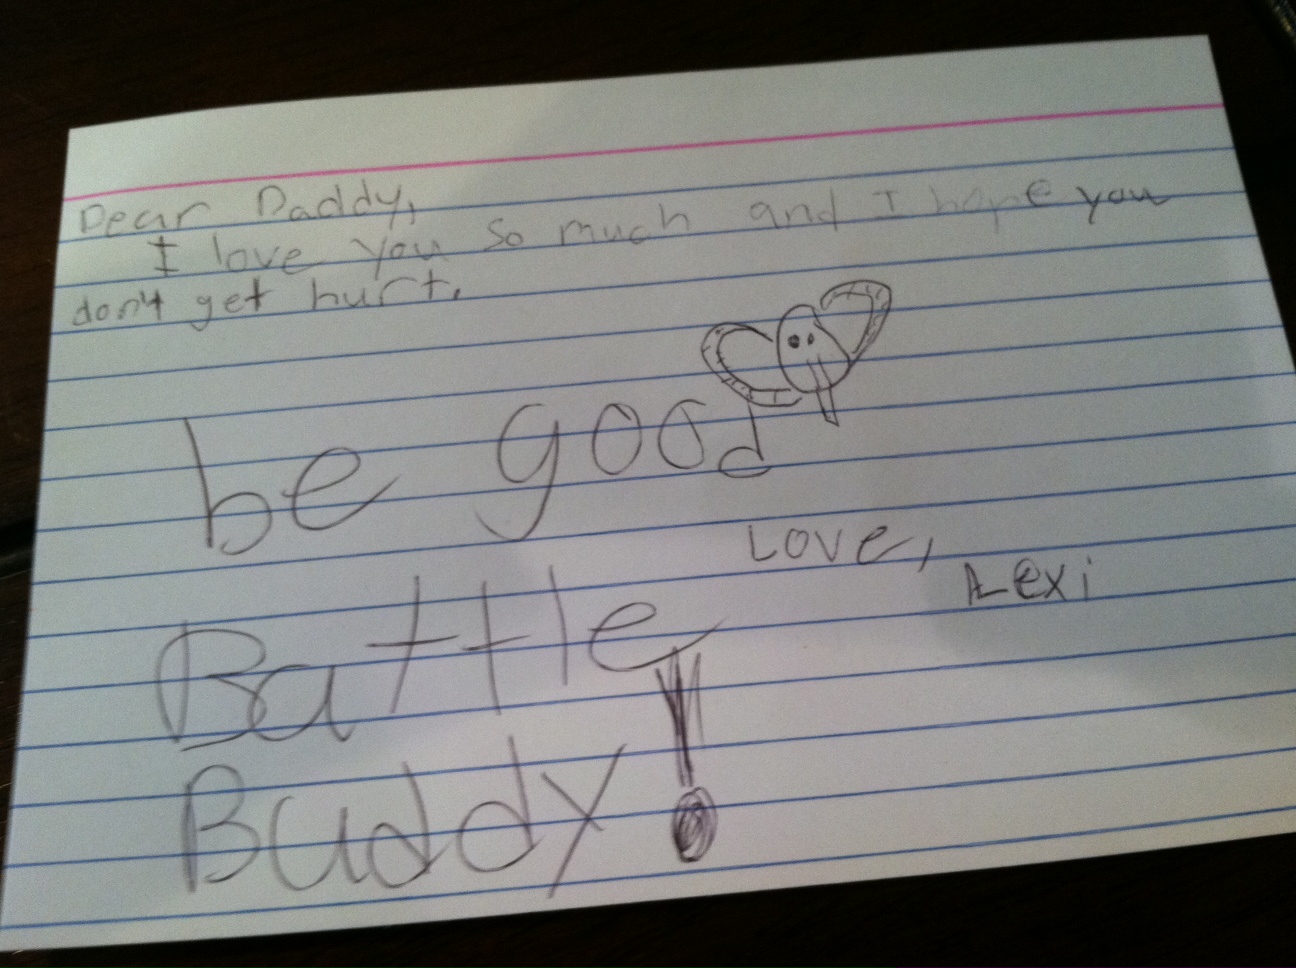 Dear Daddy,
I love you so much and I hope you
don't get hurt.
be good
Love,
Lexi
Battle
Buddy!